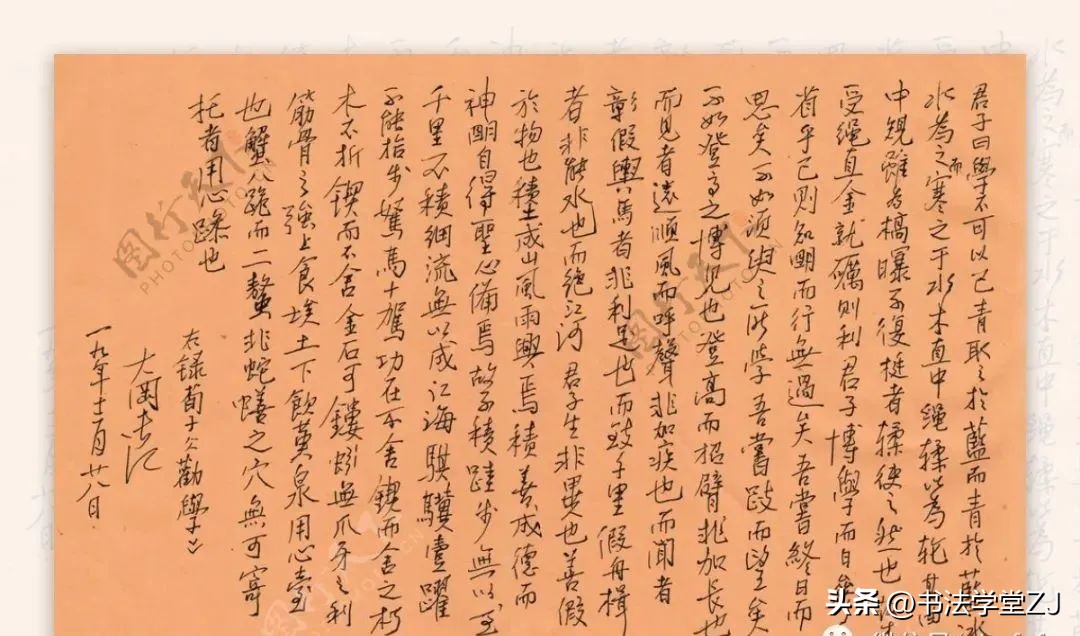 君子曰學不可以已青取之於藍而青於藍冰
水為之而寒之于水木直中繩輮以為轮其曲
中規雖有槁曝不復挺者輮使之然也
受绳直金就礪則利君子博學而日
省乎己則知明而行無過矣吾嘗終日而
思矣不如須臾之所学吾嘗跂而望矣
不如登高之博见也登高而招臂非加長也
而見者遠順風而呼聲非加疾也而聞者
彰假輿馬者非利足也而致千里假舟楫
者非能水也而绝江河君子生非異也善假
於物也積土成山風雨興焉積善成德而
神明自得聖心備焉故不積跬步無以至
千里不積細流無以成江海騏驥壹躍
不能拾步駑馬十駕功在不舍鍥而舍之朽
木不折鍥而不舍金石可鏤蚓無爪牙之利
筋骨之強上食埃土下飲黄泉用心壹
也蟹八跪而二螯非蛇蟮之穴無可寄
托者用心躁也
右録荀子《勸學》
月廿八日
图行天下
PHOTOPHOTO
头条 @书法学堂ZJ